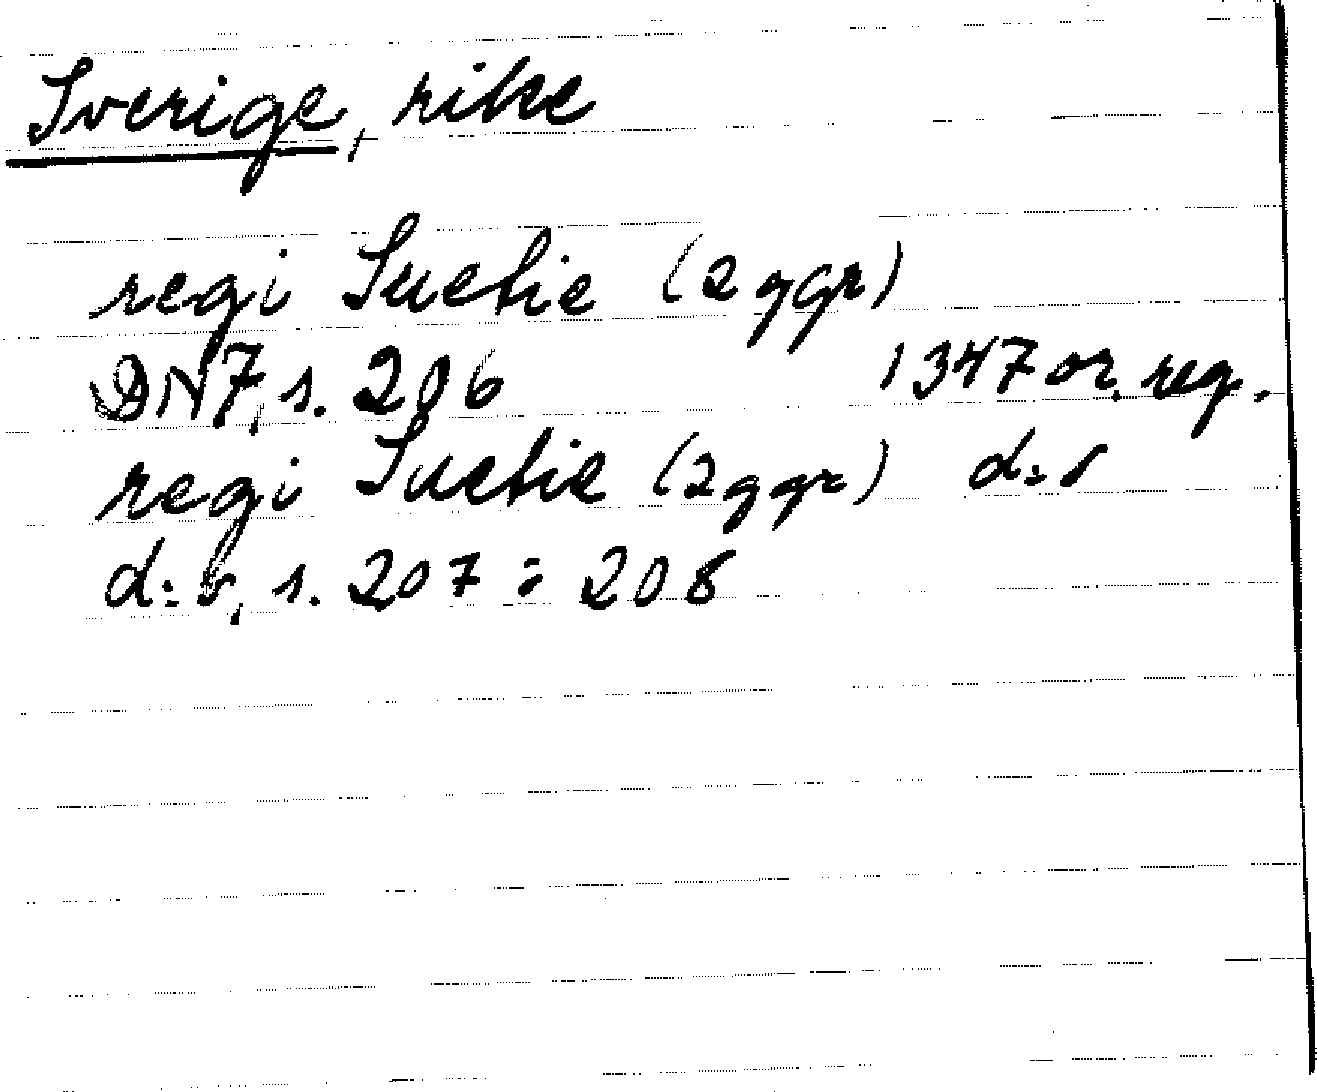 Sverige, rike
regi Suetie (2 ggr)
DN 7, s. 206 1347 or. reg.
regi Suetie (2 ggr) d:o
d:o, s. 207 o 208